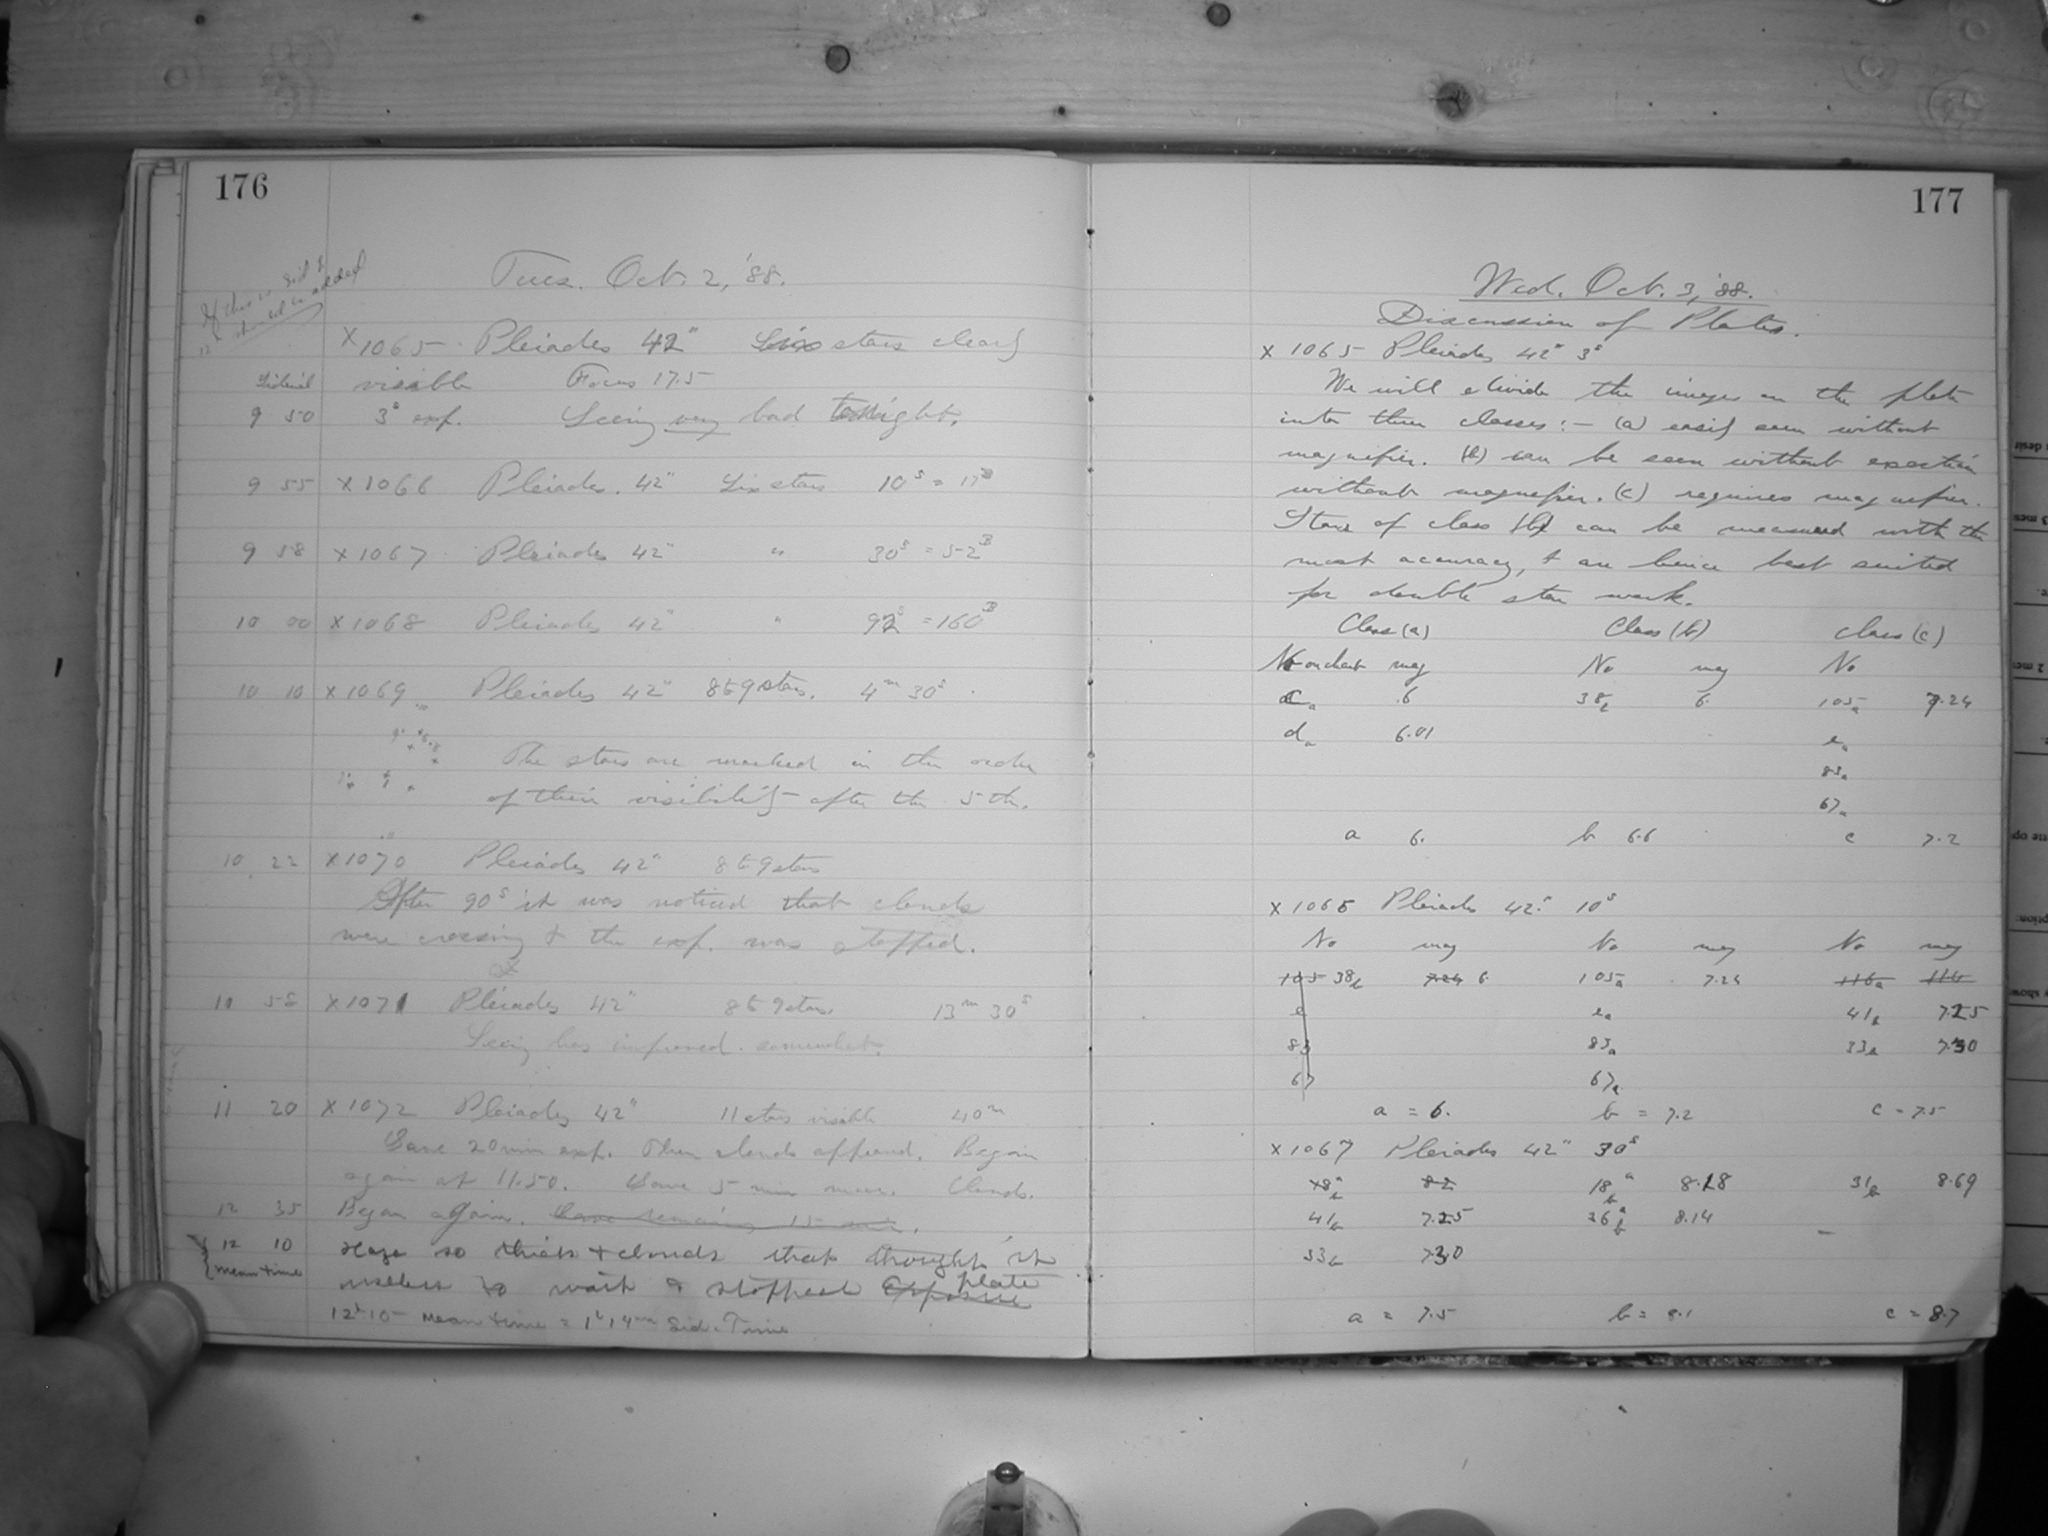 176
If this is Sid T
12h should be added
Tues. Oct. 2, '88.
X1065 Pleiades 42" Six stars clearly
Sidereal visible Focus 17.5
9 50 3s exp. Seeing very bad tonight.
9 55 X1066 Pleiades. 42" Six stars 10s = 17B
9 58 X1067 Pleiades 42" " 30s = 52B
10 00 X1068 Pleiades 42" " 92s = 160B
10 10 X1069 Pleiades 42" 8 to 9 stars. 4m 30s.
The stars are marked in the order
of their visibility after the 5th.
10 22 X1070 Pleiades 42" 8 to 9 stars
After 90s it was noticed that clouds
were crossing & the exp. was stopped.
10 58 X1071 Pleiades 42" 8 to 9 stars. 13m 30s
Seeing has improved somewhat.
11 20 X1072 Pleiades 42" 11 stars visible 40m
Gave 20 min exp. Then clouds appeared. Began
again at 11.50. Gave 5 min more. Clouds.
12 35 Began again. Gave remaining 15 min.
12 10 Haze so thick & clouds that thought it
mean time useless to wait & stopped exposure plate
12h 10 mean time = 1h 14m Sid. Time
177
Wed. Oct. 3, '88.
Discussion of Plates.
X 1065 Pleiades 42" 3s
We will divide the images on the plate
into three classes:— (a) easily seen without
magnifier. (b) can be seen without exertion
without magnifier. (c) requires magnifier.
Stars of class (b) can be measured with the
most accuracy, & are hence best suited
for double star work.
Class (a) Class (b) Class (c)
No on chart mag No mag No
Ca .6 38b 6. 105a 7.24
da 6.01 ea
83a
67a
a 6. b 6.6 c 7.2
X 1066 Pleiades 42" 10s
No mag No mag No mag
105 38b 7.24 6. 105a 7.24 116a 116
e ea 41b 7.25
83 83a 33b 7.30
67 67a
a = 6. b = 7.2 c = 7.5
X 1067 Pleiades 42" 30s
18b 82 18b 8.18 31b 8.69
41b 7.25 36b 8.14
33b 7.30
a = 7.5 b = 8.1 c = 8.7